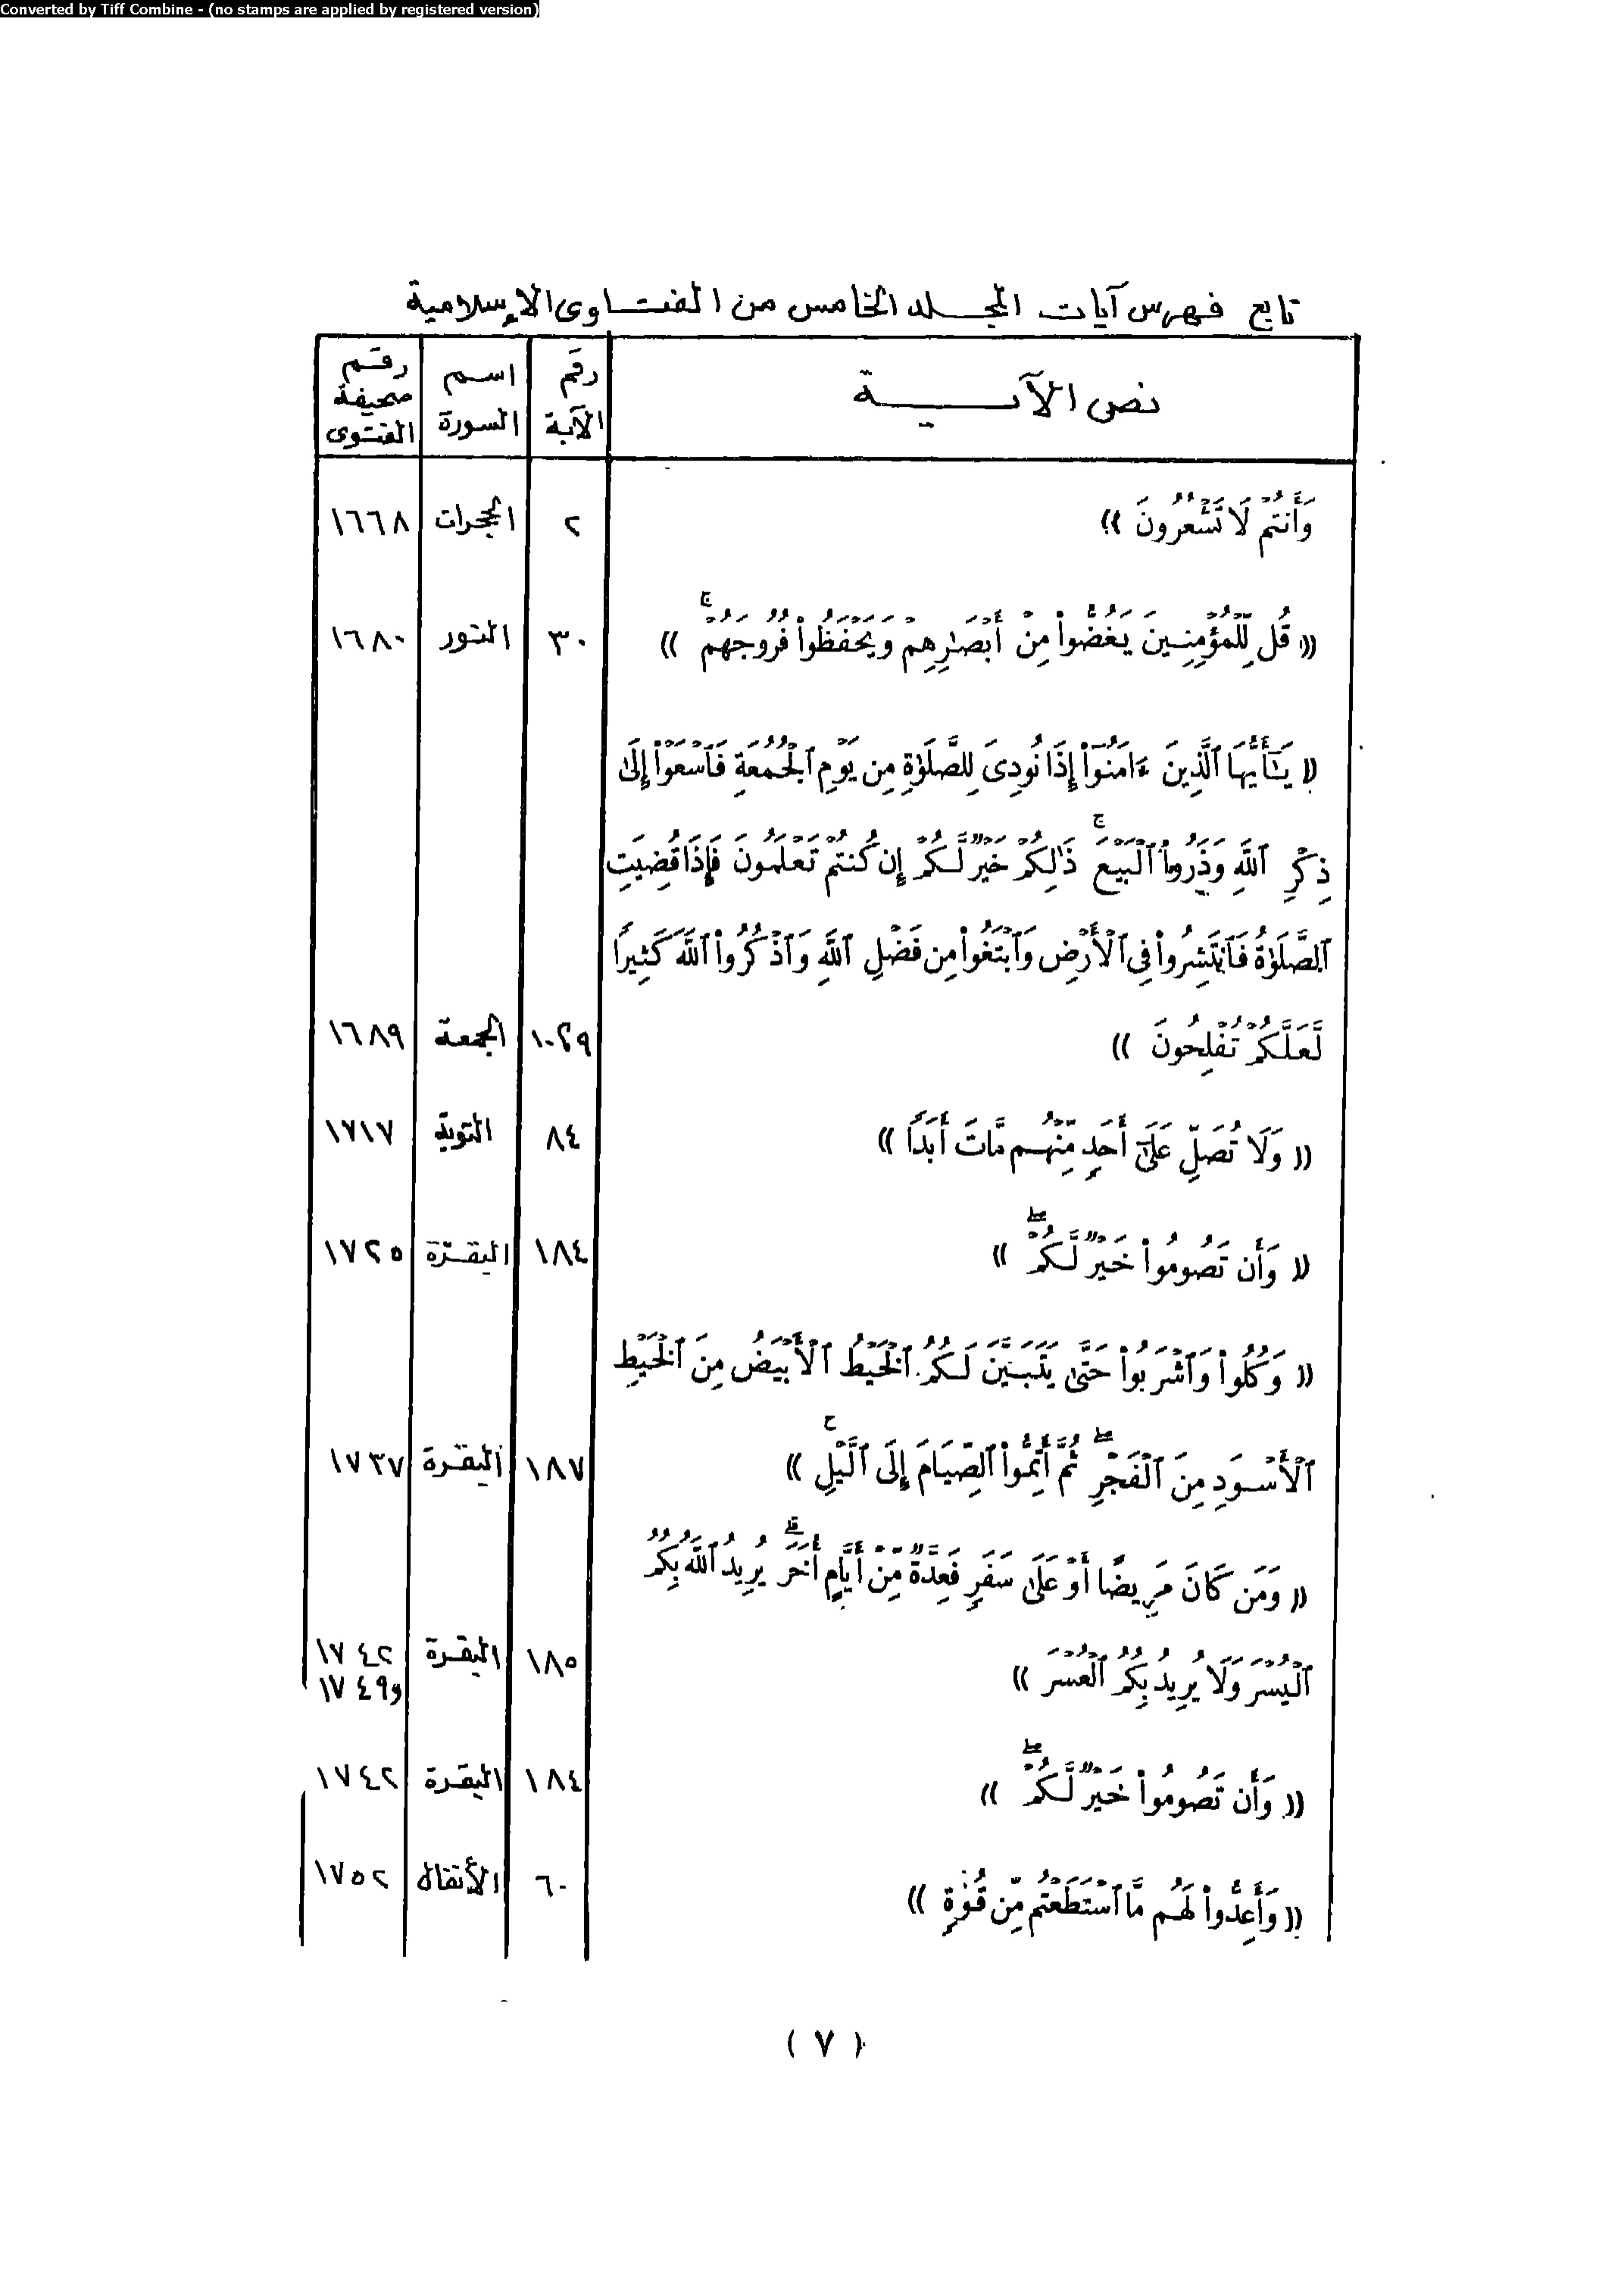 Converted by Tiff Combine - (no stamps are applied by registered version)
تابع فهرس آيات المجلد الخامس من الفتاوى الإسلامية
نص الآية | رقم الآية | اسم السورة | رقم صحيفة الفتوى
وَأَنتُمْ لَا تَشْعُرُونَ )) | ٢ | الحجرات | ١٦٦٨
(( قُل لِّلْمُؤْمِنِينَ يَغُضُّواْ مِنْ أَبْصَٰرِهِمْ وَيَحْفَظُواْ فُرُوجَهُمْ ۚ )) | ٣٠ | النور | ١٦٨٠
(( يَٰٓأَيُّهَا ٱلَّذِينَ ءَامَنُوٓاْ إِذَا نُودِىَ لِلصَّلَوٰةِ مِن يَوْمِ ٱلْجُمُعَةِ فَٱسْعَوْاْ إِلَىٰ
ذِكْرِ ٱللَّهِ وَذَرُواْ ٱلْبَيْعَ ۚ ذَٰلِكُمْ خَيْرٌ لَّكُمْ إِن كُنتُمْ تَعْلَمُونَ فَإِذَا قُضِيَتِ
ٱلصَّلَوٰةُ فَٱنتَشِرُواْ فِى ٱلْأَرْضِ وَٱبْتَغُواْ مِن فَضْلِ ٱللَّهِ وَٱذْكُرُواْ ٱللَّهَ كَثِيرًا
لَّعَلَّكُمْ تُفْلِحُونَ )) | ٩، ١٠ | الجمعة | ١٦٨٩
(( وَلَا تُصَلِّ عَلَىٰٓ أَحَدٍ مِّنْهُم مَّاتَ أَبَدًا )) | ٨٤ | التوبة | ١٧١٧
(( وَأَن تَصُومُواْ خَيْرٌ لَّكُمْ ۖ )) | ١٨٤ | البقرة | ١٧٢٥
(( وَكُلُواْ وَٱشْرَبُواْ حَتَّىٰ يَتَبَيَّنَ لَكُمُ ٱلْخَيْطُ ٱلْأَبْيَضُ مِنَ ٱلْخَيْطِ
ٱلْأَسْوَدِ مِنَ ٱلْفَجْرِ ۖ ثُمَّ أَتِمُّواْ ٱلصِّيَامَ إِلَى ٱلَّيْلِ ۚ )) | ١٨٧ | البقرة | ١٧٣٧
(( وَمَن كَانَ مَرِيضًا أَوْ عَلَىٰ سَفَرٍ فَعِدَّةٌ مِّنْ أَيَّامٍ أُخَرَ ۗ يُرِيدُ ٱللَّهُ بِكُمُ
ٱلْيُسْرَ وَلَا يُرِيدُ بِكُمُ ٱلْعُسْرَ )) | ١٨٥ | البقرة | ١٧٤٢ و١٧٤٩
(( وَأَن تَصُومُواْ خَيْرٌ لَّكُمْ ۖ )) | ١٨٤ | البقرة | ١٧٤٢
(( وَأَعِدُّواْ لَهُم مَّا ٱسْتَطَعْتُم مِّن قُوَّةٍ )) | ٦٠ | الأنفال | ١٧٥٢
( ٧ )